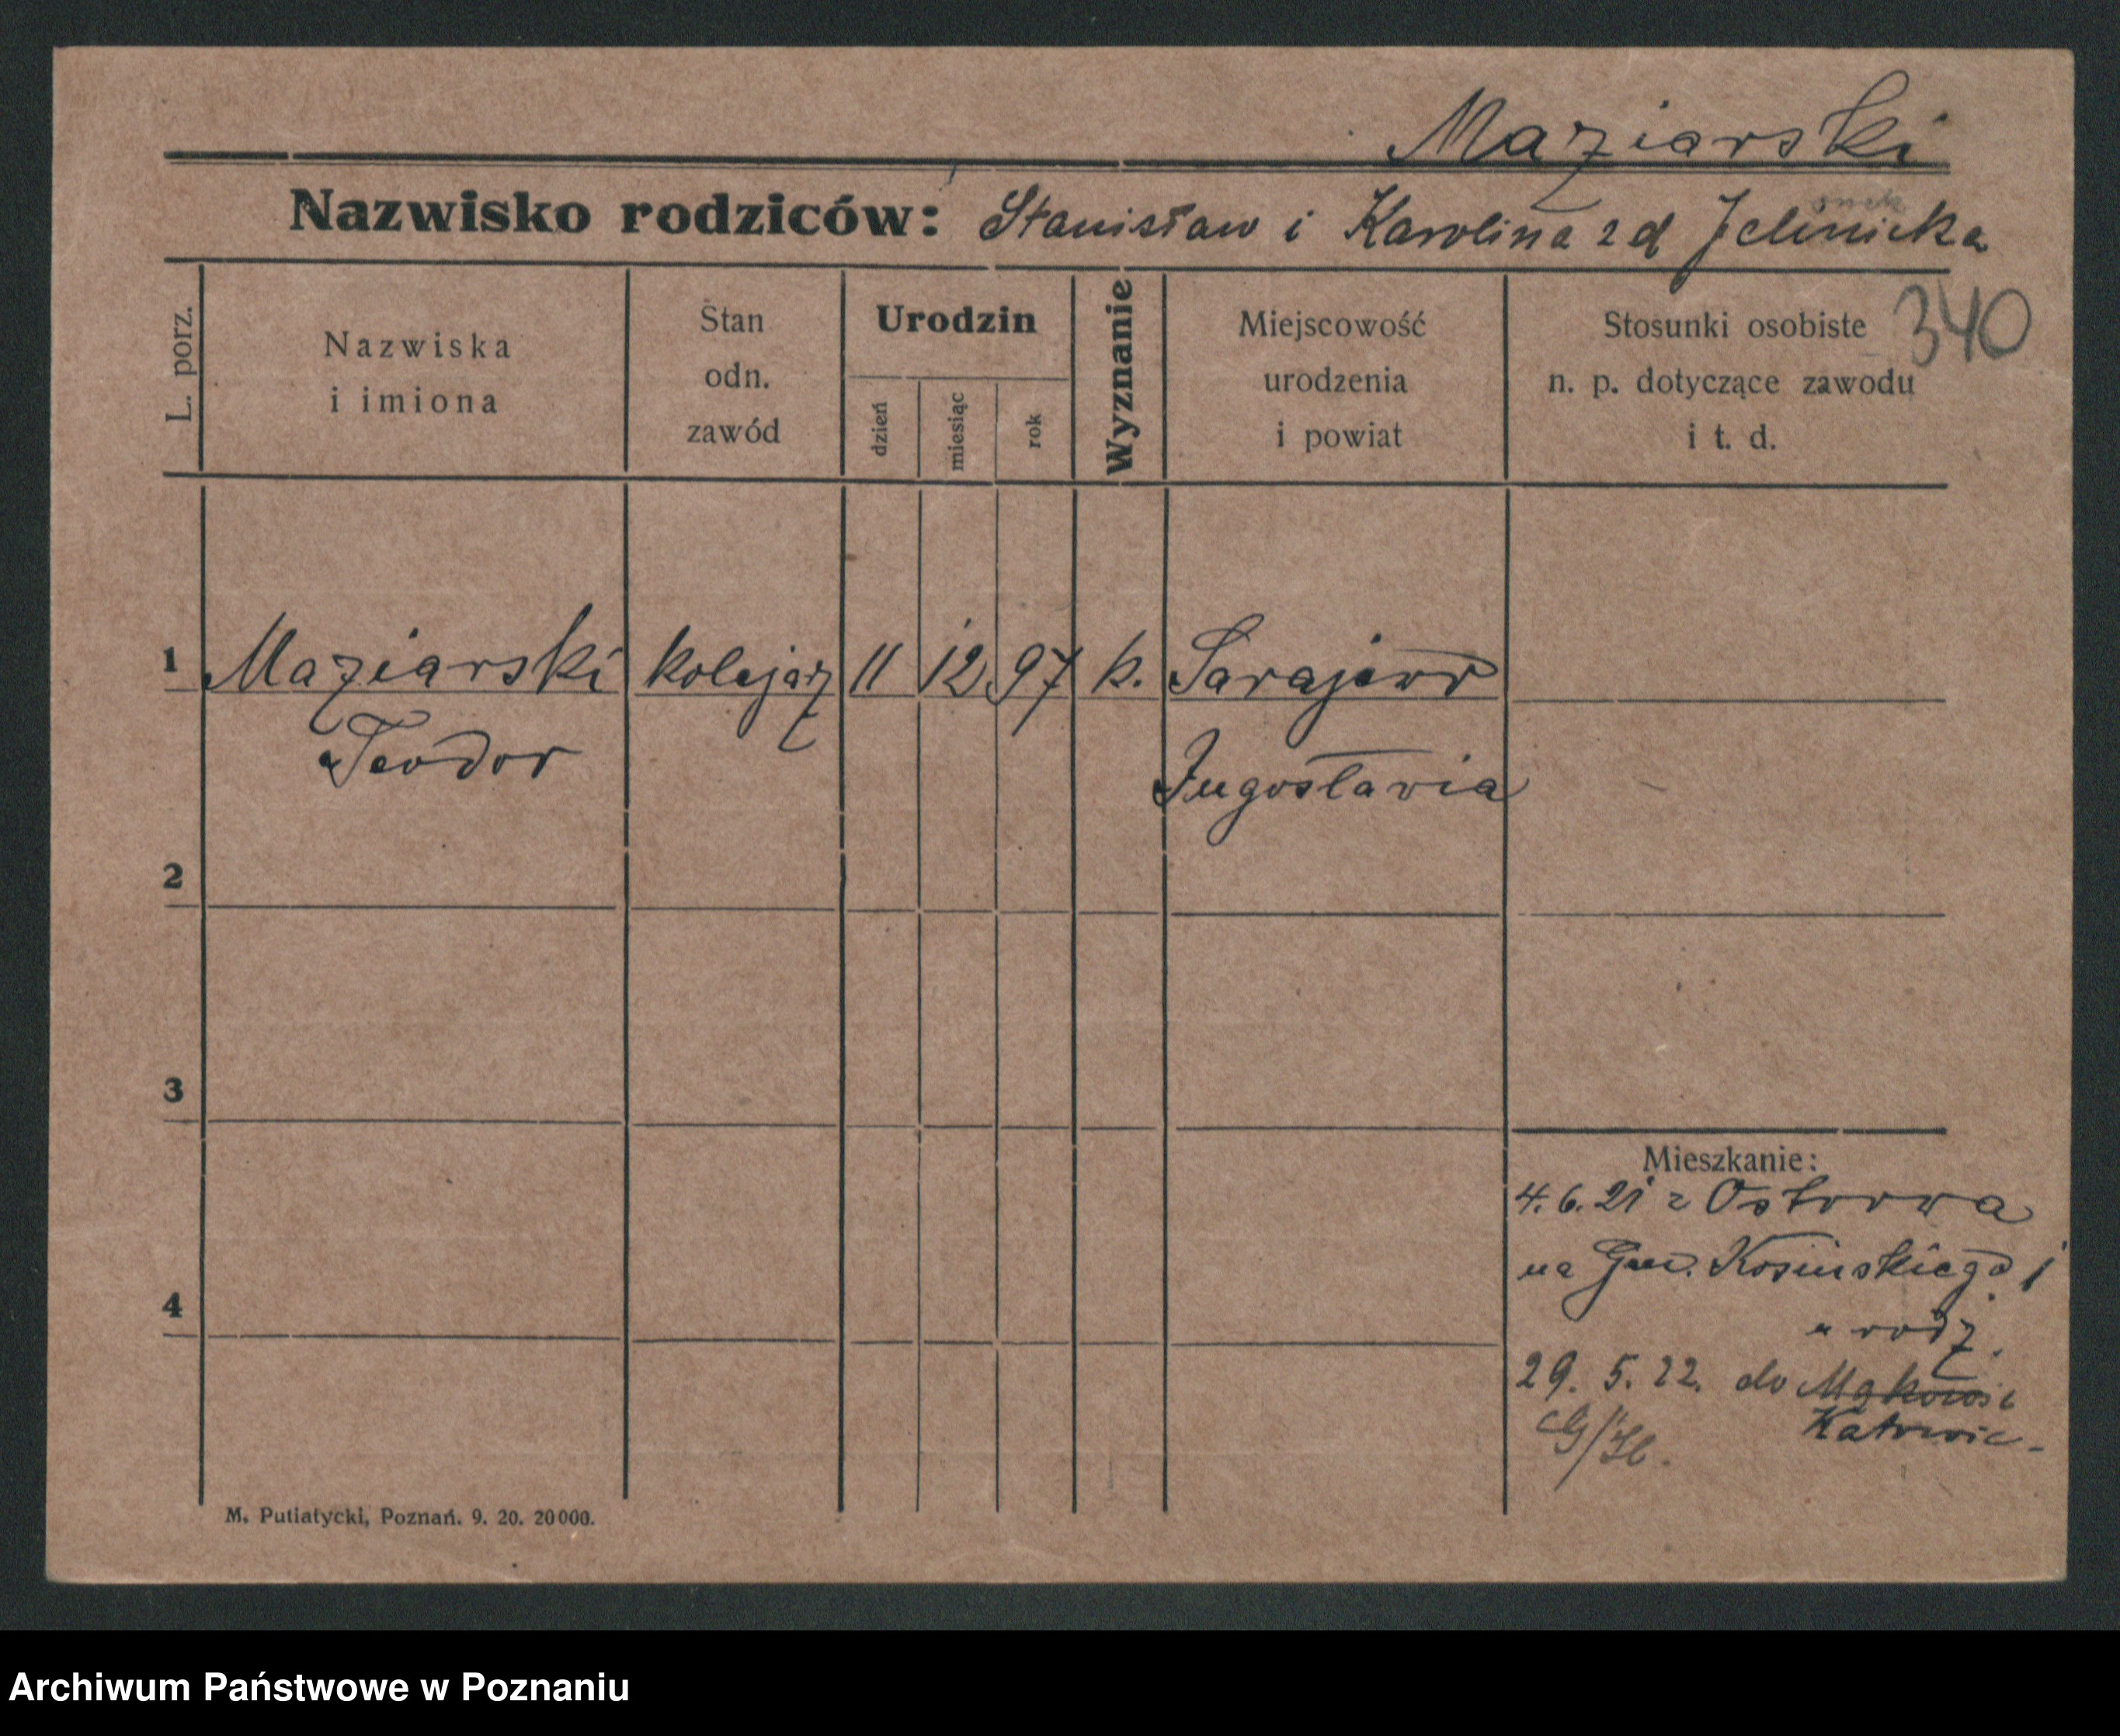 Maziarski
Nazwisko rodziców: Stanisław i Karolina z d Jelinicka
340
L. porz.
Nazwiska
i imiona
Stan
odn.
zawód
Urodzin
dzień
miesiąc
rok
Wyznanie
Miejscowość
urodzenia
i powiat
Stosunki osobiste
n. p. dotyczące zawodu
i t. d.
1 Maziarski kolejarz 11 12 97 k. Sarajewo
Teodor Jugosławia
2
3
4
Mieszkanie:
4. 6. 21 z Ostrowa
na Gen. Kosińskiego 1
u rodz.
29. 5. 22. do
Katowic
M. Putiatycki, Poznań. 9. 20. 20000.
Archiwum Państwowe w Poznaniu